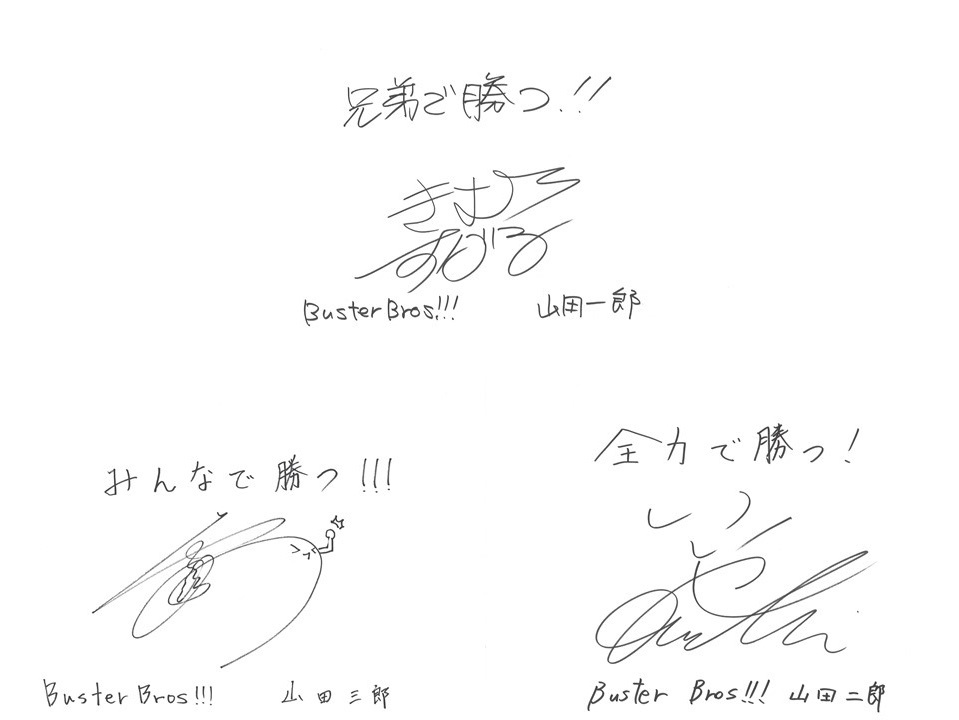 兄弟で勝つ.!!
きむら
すばる
Buster Bros!!! 山田一郎
全力で勝つ!
みんなで勝つ!!!
Buster Bros!!! 山田三郎
Buster Bros!!! 山田二郎